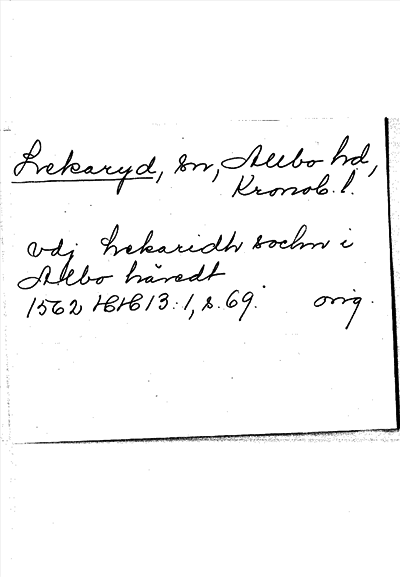 Lekaryd, sn, Allbo hd,
Kronob. l.
vdj Lekaridh sochn i
Allbo häredt
1562 HH 13:1, s. 69. orig.